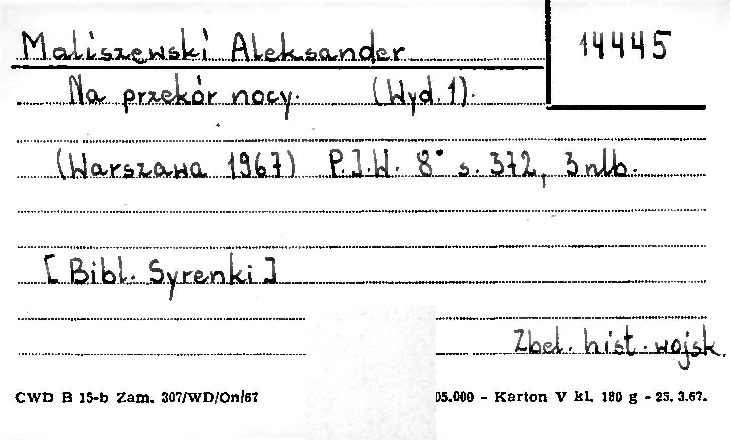 Maliszewski Aleksander 14445
Na przekór nocy. (Wyd. 1).
(Warszawa 1967) P.I.W. 8° s. 372, 3 nlb.
[Bibl. Syrenki]
Zbel. hist. wojsk.
CWD B 15-b Zam. 307/WD/On/67 05.000 - Karton V kl. 180 g - 25. 3.67.